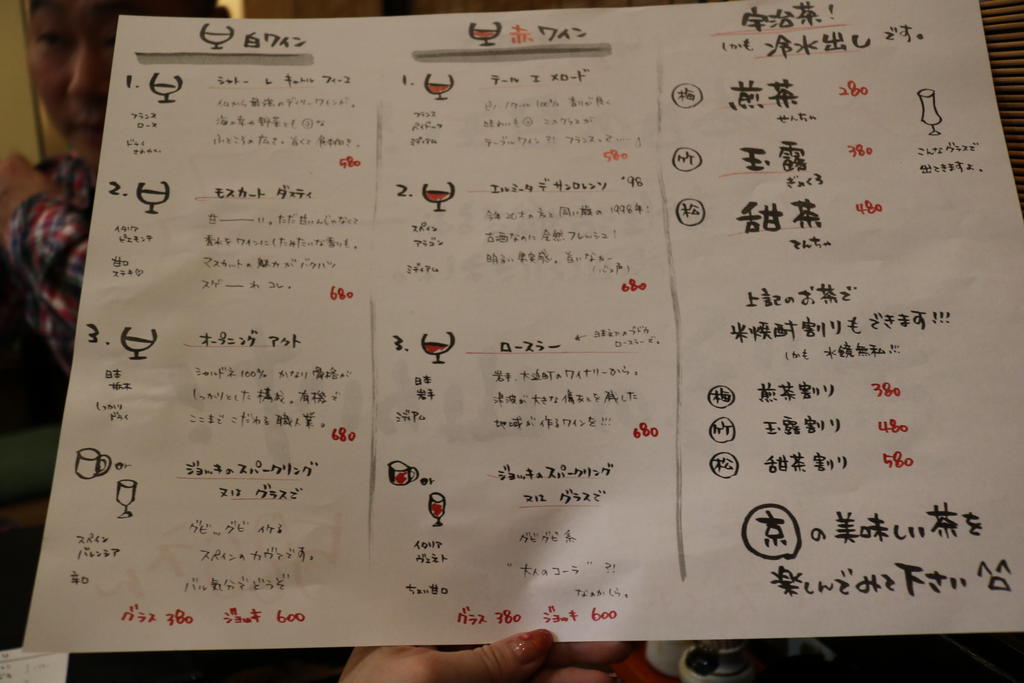 白ワイン
1.
シャトー レ
フランス
580
2.
モスカート ダスティ
イタリア
ピエモンテ
甘口
ステキ♡
甘――い。ただ甘いんじゃなくて
香水をワインにしたみたいな香りも。
マスカットの魅力がバクハツ
スゲ――わ コレ。
680
3.
オープニング アクト
日本
栃木
しっかり
ドライ
シャルドネ100% かなり骨格が
しっかりとした構成。有機で
ここまでこだわる職人業。
680
or
ジョッキのスパークリング
又は グラスで
スペイン
バレンシア
辛口
グビッ、グビ イケる
スペインのカヴァです。
バル気分でどうぞ
グラス 380 ジョッキ 600
赤ワイン
1.
テール エ メロード
フランス
ミディアム
580
2.
エルミータ デ サンロレンソ '98
スペイン
アラゴン
ミディアム
今年20才の方と同い歳の1998年!
古酒なのに全然フレッシュ!
明るい果実感。旨いなぁー
(心の声)
680
3.
ロースラー
日本
岩手
ミディアム
岩手、大迫町のワイナリーから。
津波が大きな傷あとを残した
地域が作るワインを!!!
680
or
ジョッキのスパークリング
又は グラスで
イタリア
ヴェネト
ちょい甘口
グビグビ系
"大人のコーラ"?!
なのかしら。
グラス 380 ジョッキ 600
宇治茶!
しかも 冷水出しです。
梅 煎茶 280
せんちゃ
竹 玉露 380
ぎょくろ
松 甜茶 480
てんちゃ
こんなグラスで
出てきますよ。
上記のお茶で
米焼酎割りもできます!!!
しかも 水鏡無私!!!
梅 煎茶割り 380
竹 玉露割り 480
松 甜茶割り 580
京の美味しい茶を
楽しんでみて下さい